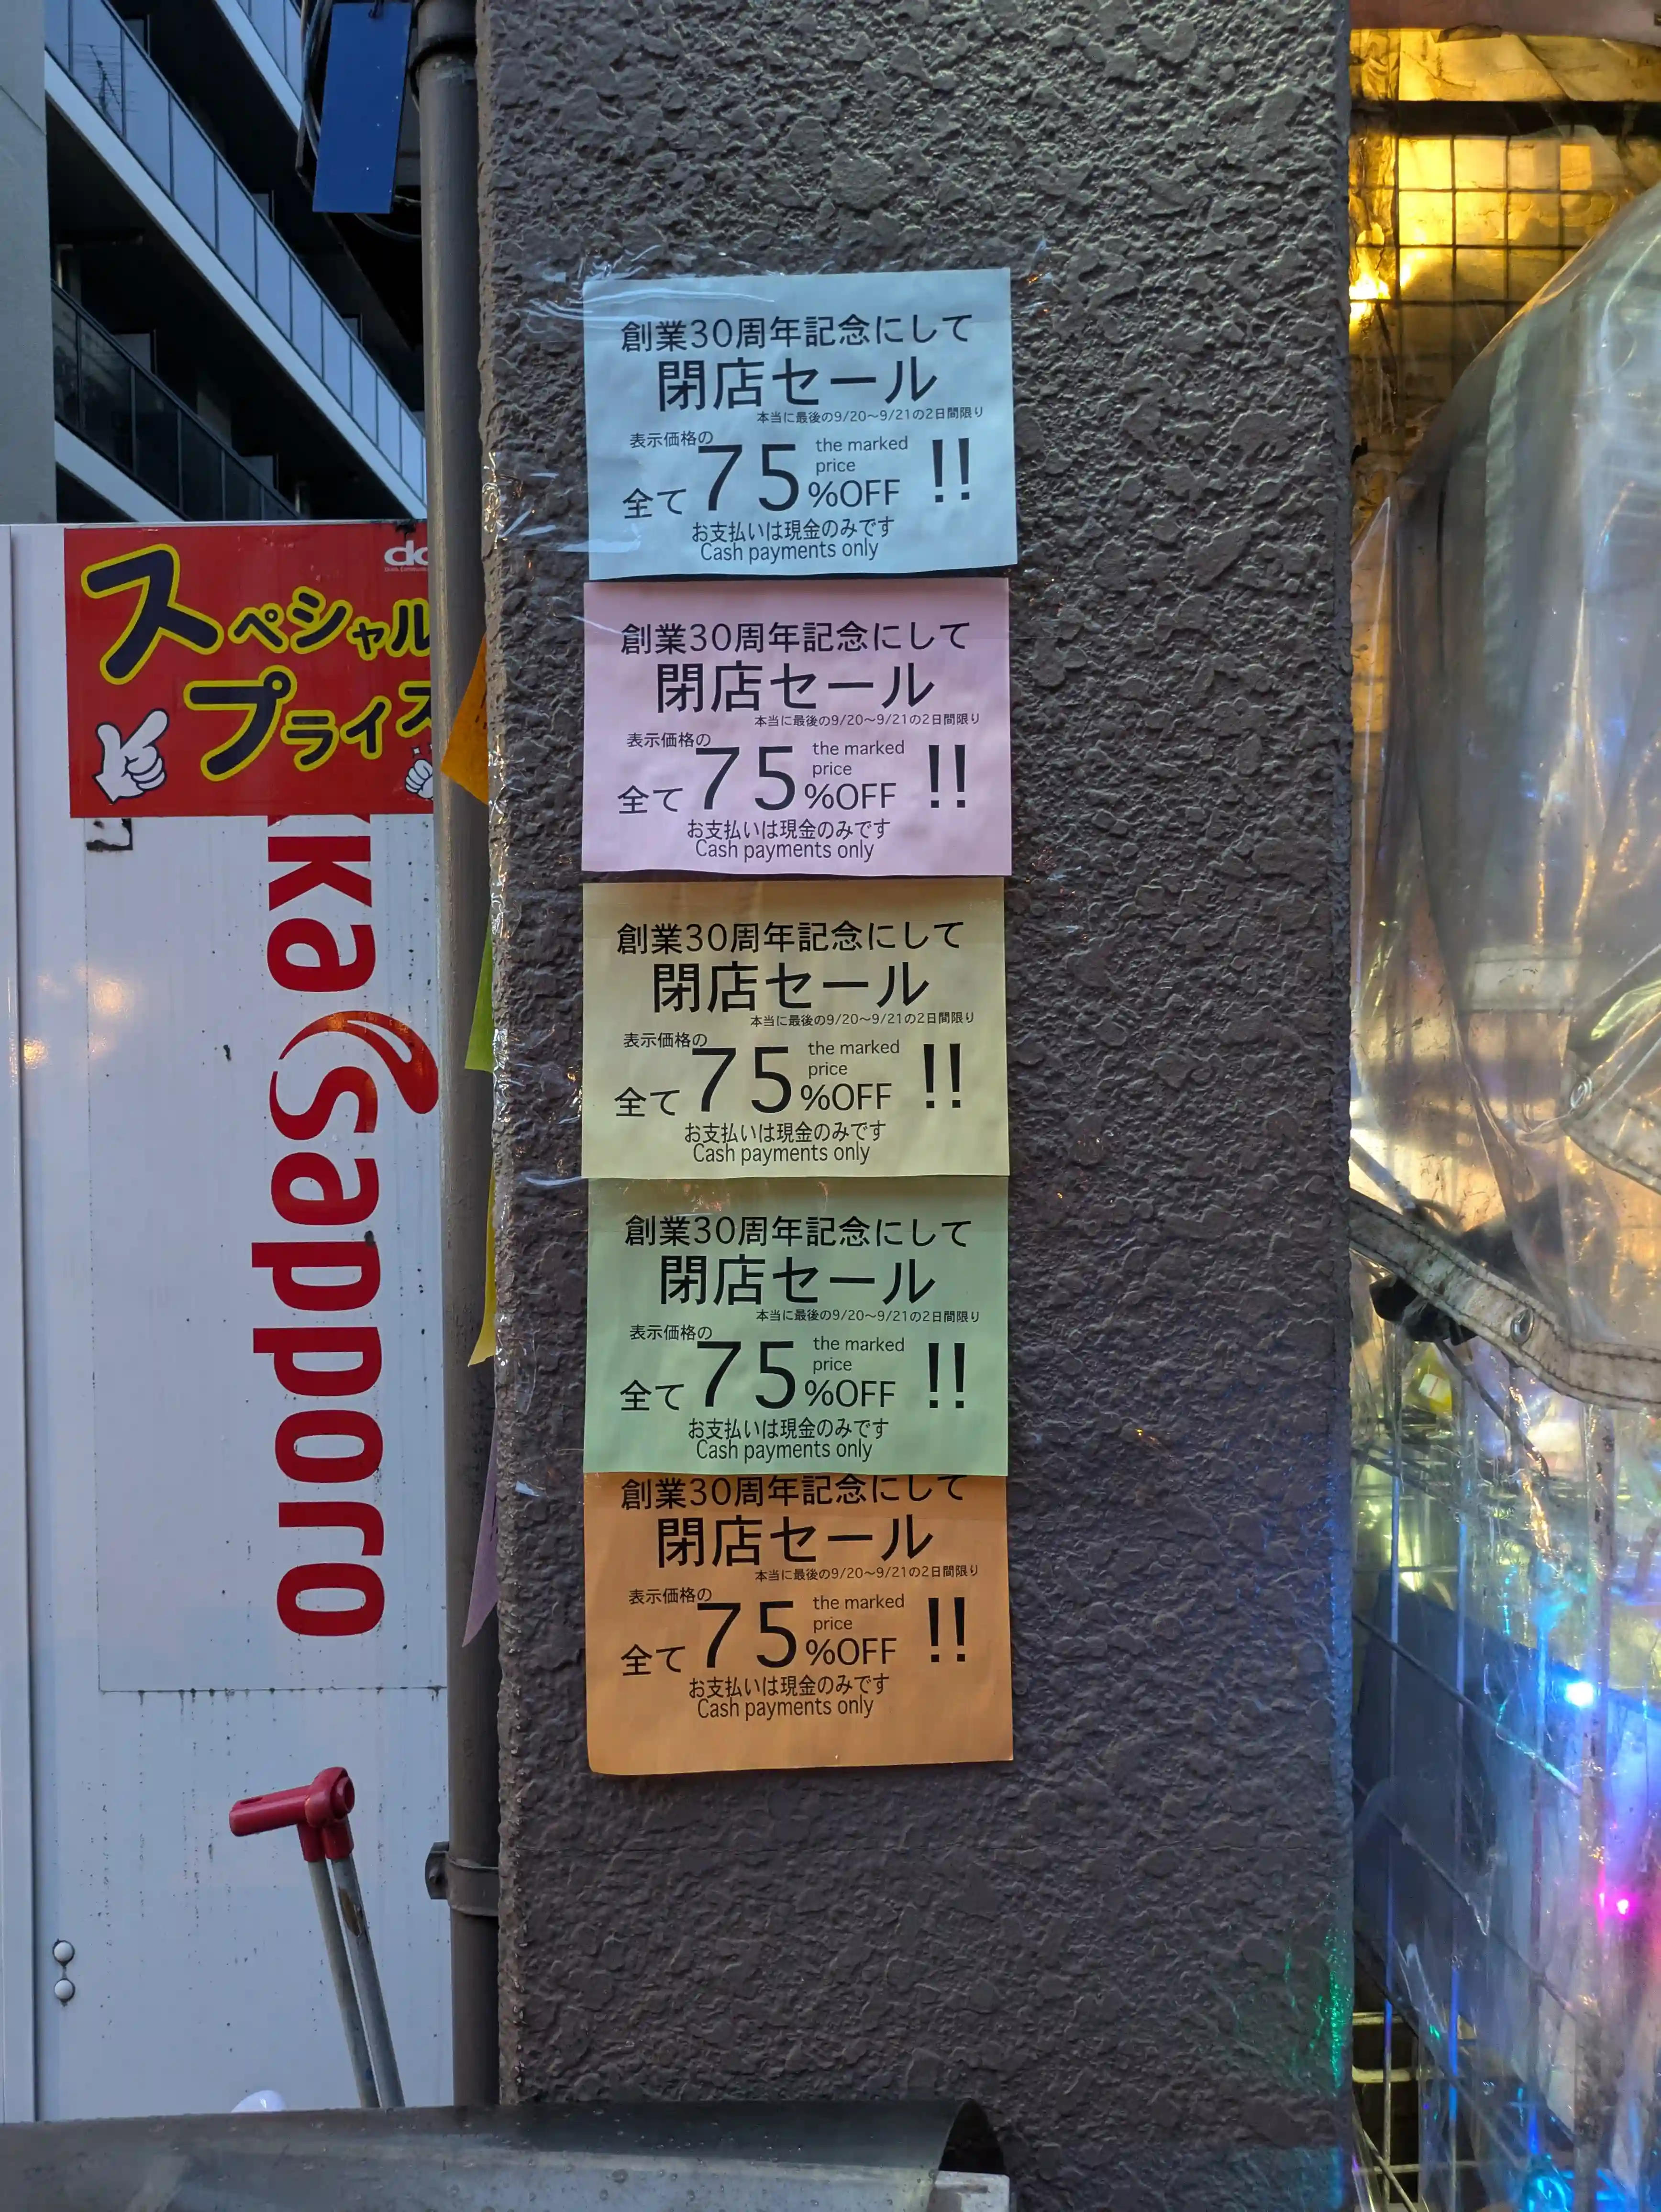 スペシャル
プライス
kka sapporo
創業30周年記念にして
閉店セール
本当に最後の9/20〜9/21の2日間限り
表示価格の
全て75%OFF the marked price !!
お支払いは現金のみです
Cash payments only
創業30周年記念にして
閉店セール
本当に最後の9/20〜9/21の2日間限り
表示価格の
全て75%OFF the marked price !!
お支払いは現金のみです
Cash payments only
創業30周年記念にして
閉店セール
本当に最後の9/20〜9/21の2日間限り
表示価格の
全て75%OFF the marked price !!
お支払いは現金のみです
Cash payments only
創業30周年記念にして
閉店セール
本当に最後の9/20〜9/21の2日間限り
表示価格の
全て75%OFF the marked price !!
お支払いは現金のみです
Cash payments only
創業30周年記念にして
閉店セール
本当に最後の9/20〜9/21の2日間限り
表示価格の
全て75%OFF the marked price !!
お支払いは現金のみです
Cash payments only